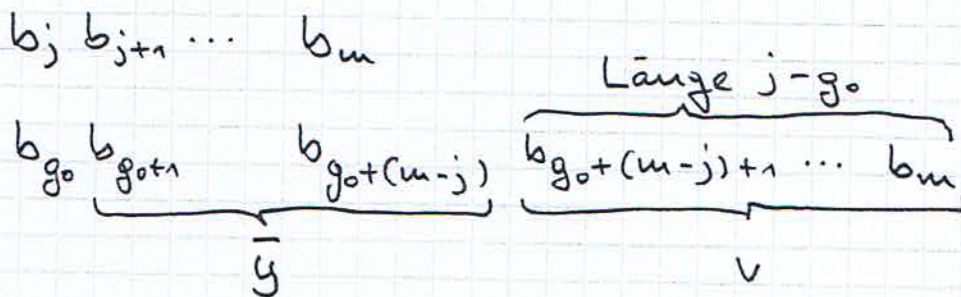 b_j b_{j+1} ... b_m
Länge j-g_0
b_{g_0} b_{g_0+1} b_{g_0+(m-j)} b_{g_0+(m-j)+1} ... b_m
ȳ v